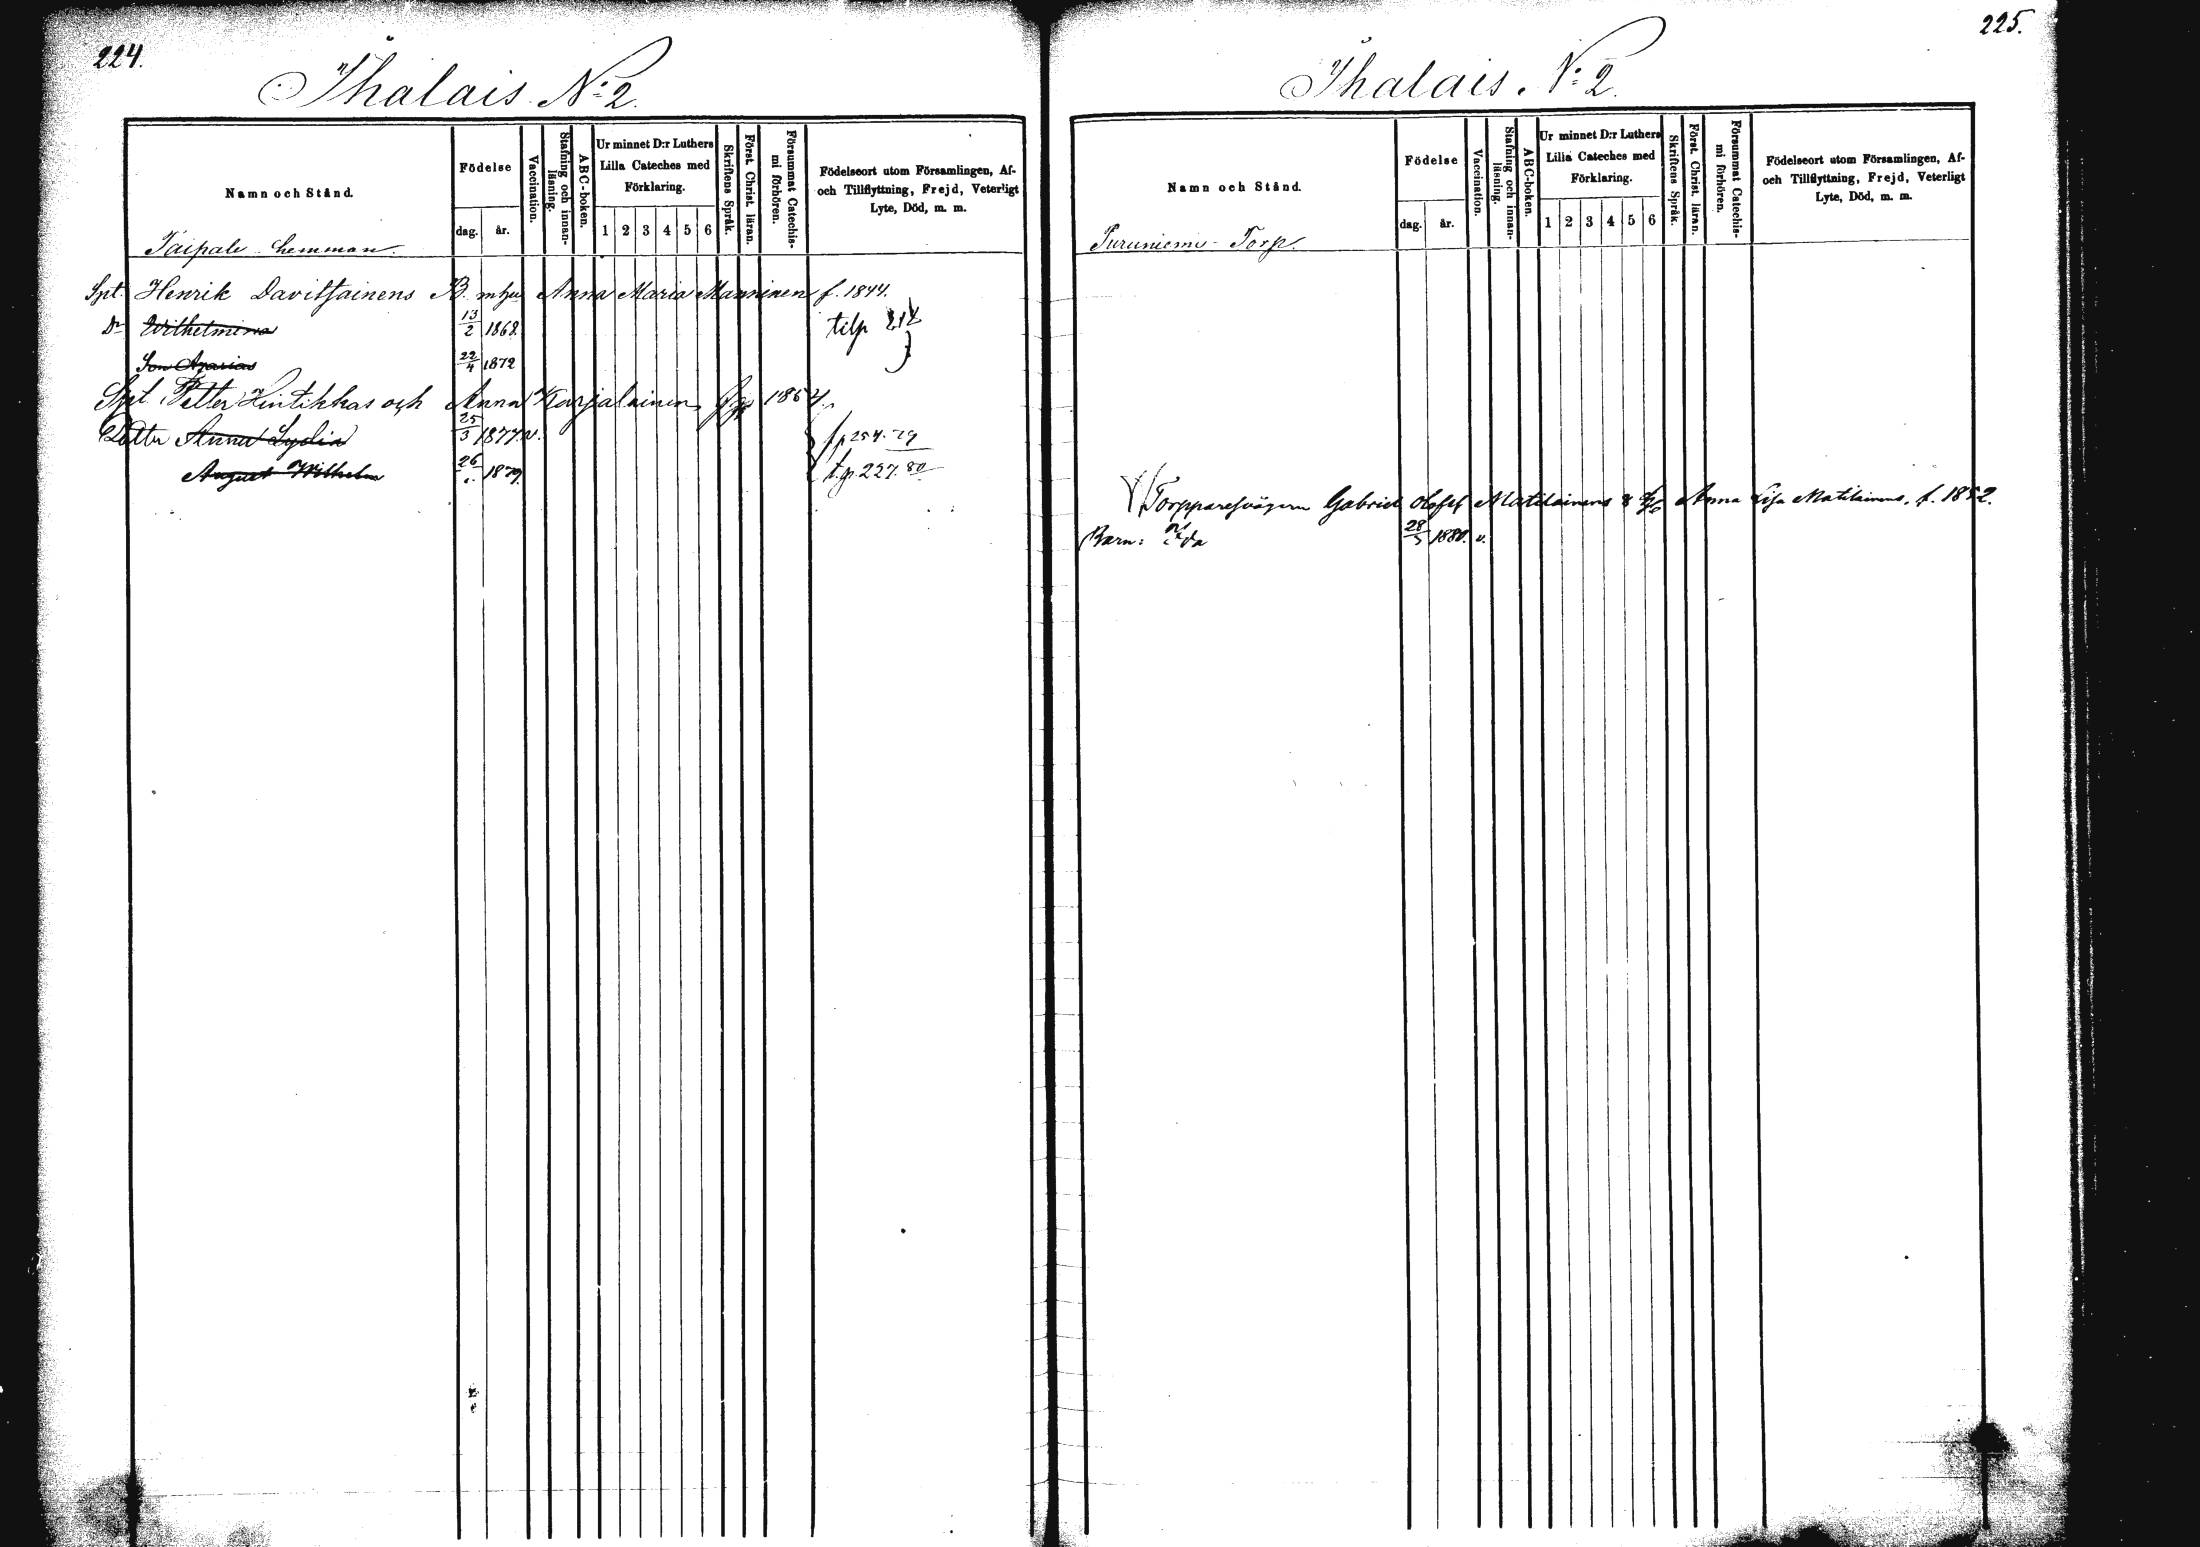 224.
Ihalais N:o 2.
Namn och Stånd.
Födelse
dag.
år.
Vaccination.
Stafning och innan-
läsning.
ABC-boken.
Ur minnet D:r Luthers
Lilla Cateches med
Förklaring.
1 2 3 4 5 6
Skriftens Språk.
Först. Christ. läran.
Försummat Catechis-
mi förhören.
Födelseort utom Församlingen, Af-
och Tillflyttning, Frejd, Veterligt
Lyte, Död, m. m.
Taipale hemman.
Spt. Henrik Davitsainens B. m hu Anna Maria Manninen f. 1844.
Dr Wilhelmina 13/2 1868. tilp 212
Son Azarias 22/4 1872
Spt. Petter Hintikkas och Anna Karjalainen 1854.
Dotter Anna Lydia 25/3 1877. v. fp 254. 79
August Wilhelm 26 1879. t.p. 227. 80
225.
Ihalais N:o 2.
Namn och Stånd.
Födelse
dag.
år.
Vaccination.
Stafning och innan-
läsning.
ABC-boken.
Ur minnet D:r Luthers
Lilla Cateches med
Förklaring.
1 2 3 4 5 6
Skriftens Språk.
Först. Christ. läran.
Försummat Catechis-
mi förhören.
Födelseort utom Församlingen, Af-
och Tillflyttning, Frejd, Veterligt
Lyte, Död, m. m.
Turuniemi Torp.
Torpparesvågern Gabriel Olofss Matilainens & Anna Lisa Matilainens, f. 1852.
Barn: Ida 28/5 1880. v.